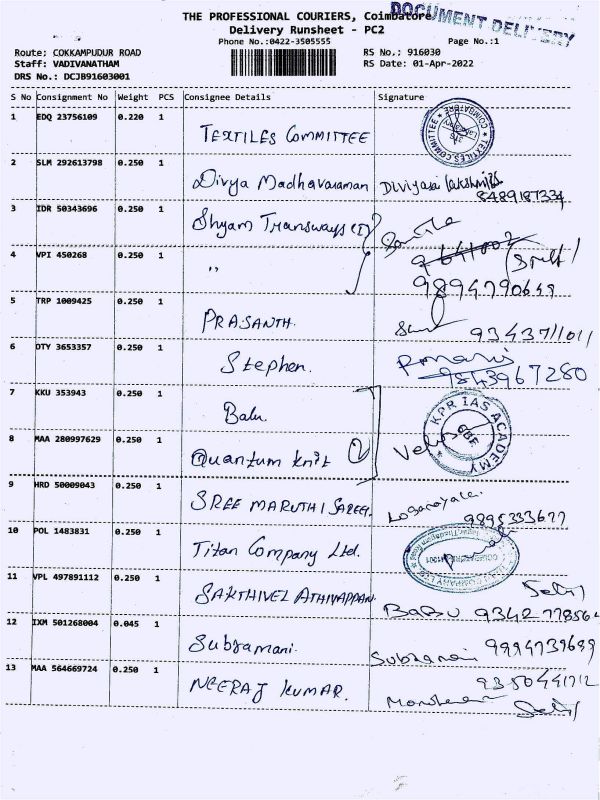 THE PROFESSIONAL COURIERS, Coimbatore
DOCUMENT DELIVERY
Delivery Runsheet - PC2
Phone No.:0422-3505555
Page No.:1
Route: COKKAMPUDUR ROAD
RS No.: 916030
Staff: VADIVANATHAM
RS Date: 01-Apr-2022
DRS No.: DCJB91603001
S No Consignment No Weight PCS Consignee Details Signature
1 EDQ 23756109 0.220 1 TEXTILES COMMITTEE
TEXTILES COMMITTEE COIMBATORE
2 SLM 292613798 0.250 1 Divya Madhavaraman
8489187334
3 IDR 50343696 0.250 1 Shyam Transways (I)
4 VPI 450268 0.250 1 "
9894790649
5 TRP 1009425 0.250 1 PRASANTH.
6 DTY 3653357 0.250 1 Stephen.
9843967280
7 KKU 353943 0.250 1 Balu.
KPR IAS ACADEMY
8 MAA 280997629 0.250 1 Quantum knit (2)
9 HRD 50009043 0.250 1 SREE MARUTHI
9895333677
10 POL 1483831 0.250 1 Titan Company Ltd.
11 VPL 497891112 0.250 1 SAKTHIVEL ATHIYAPPAN.
BABU 9342778564
12 IXM 501268004 0.045 1 Subramani.
9994739699
13 MAA 564669724 0.250 1 NEERAJ KUMAR.